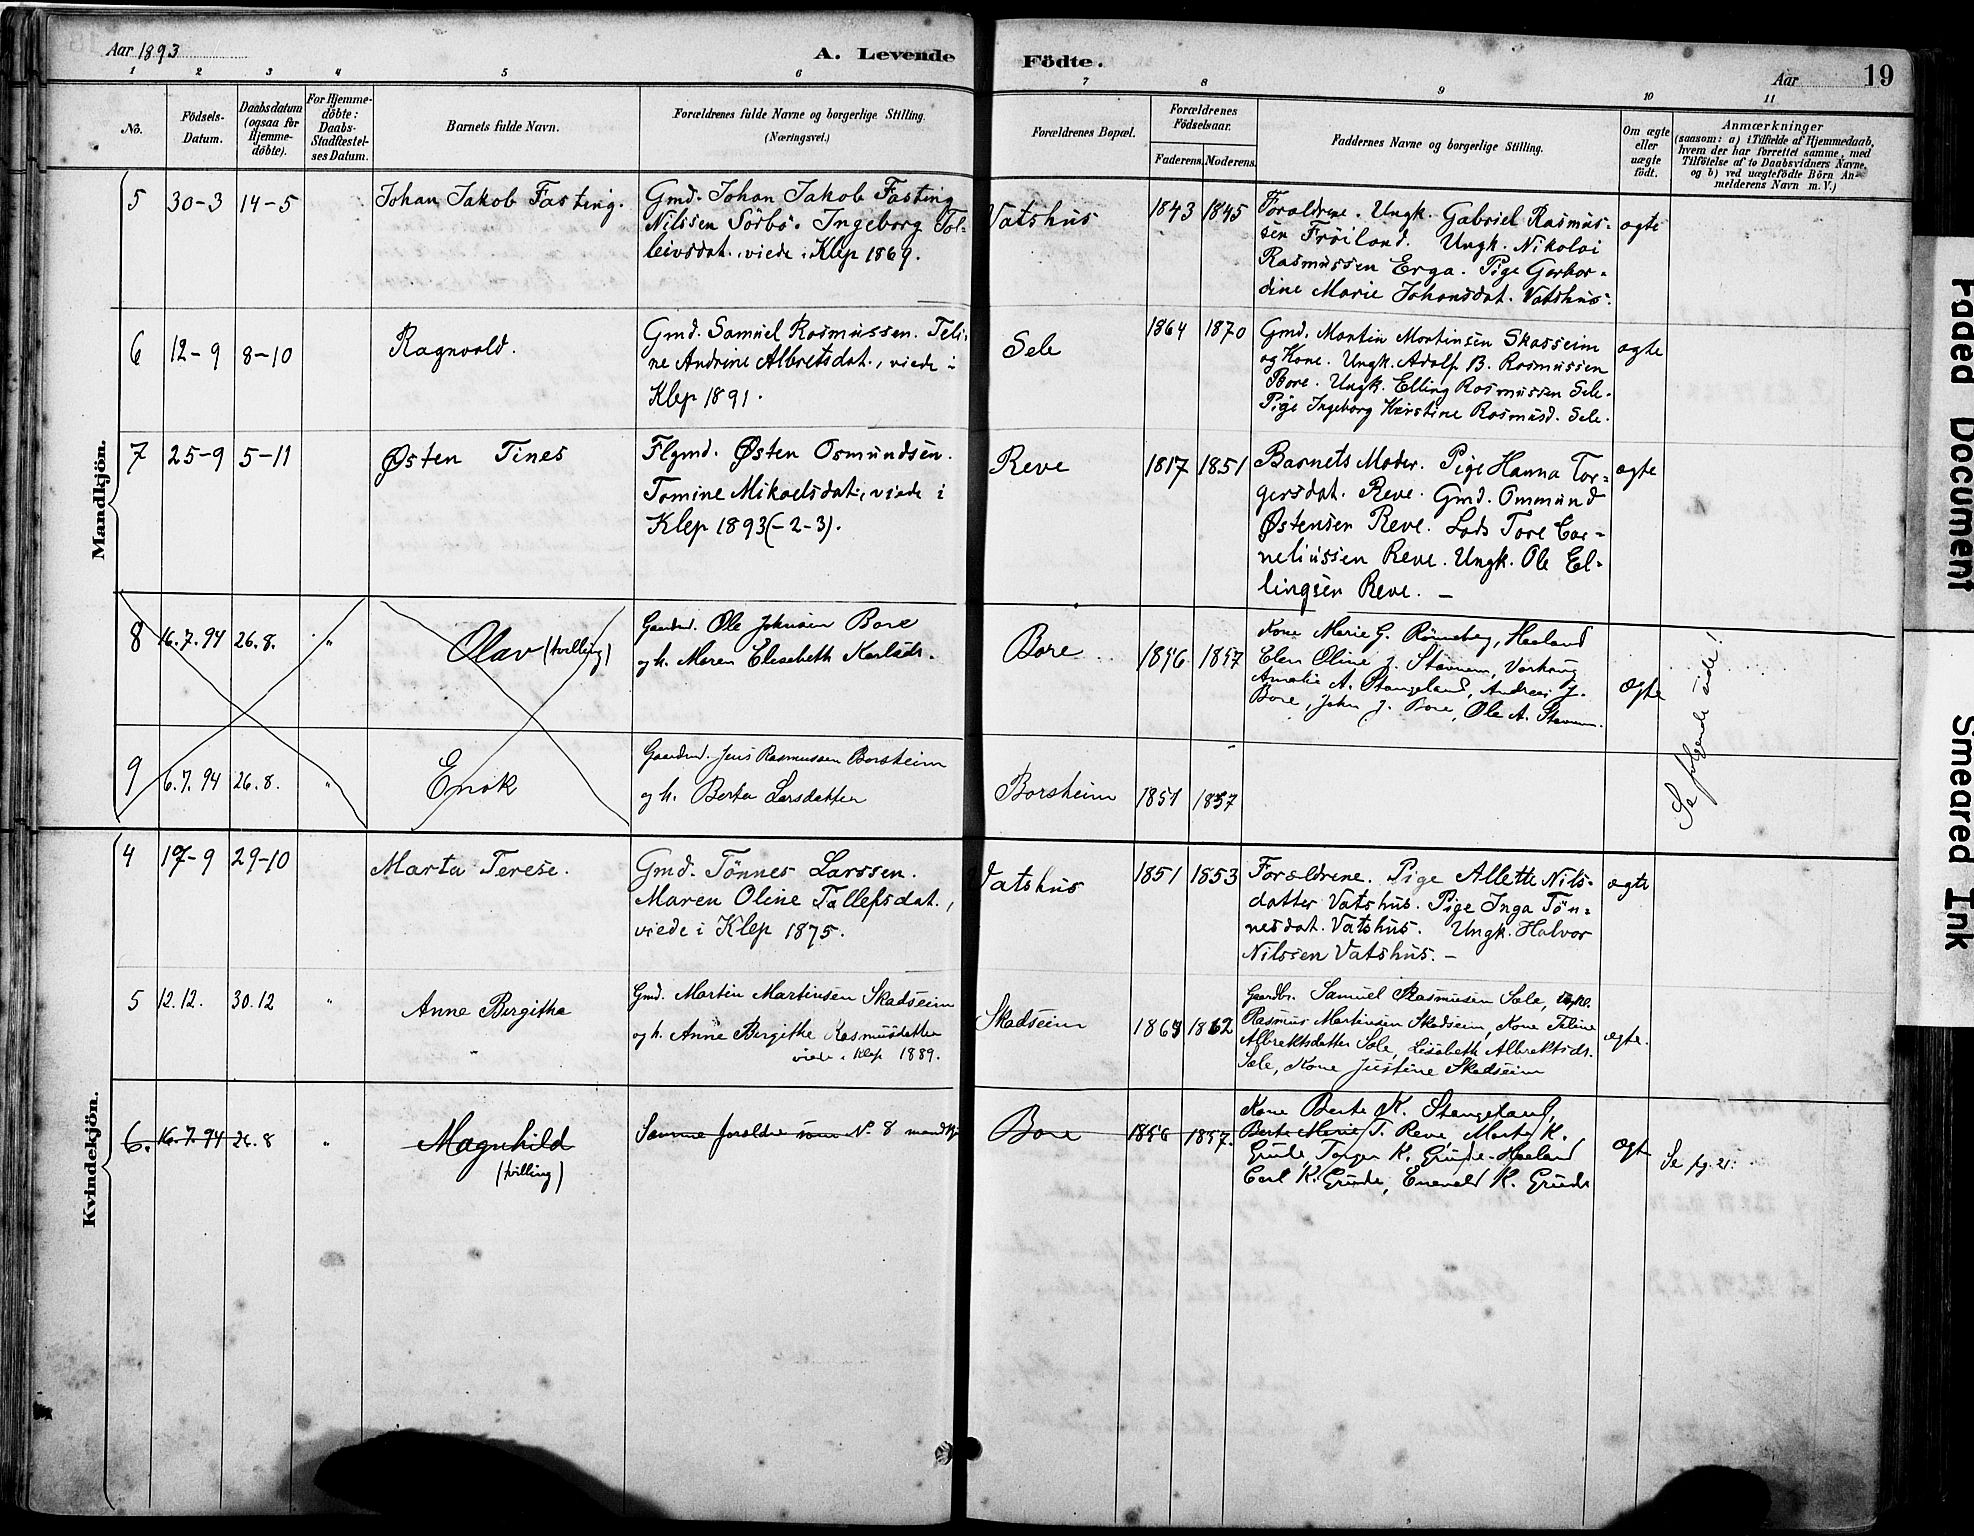 Aar 1893
A. Levende Födte.
Aar 19
1 2 3 4 5 6 7 8 9 10 11
No.
Födsels-Datum.
Daabsdatum (ogsaa for Hjemme-döbte).
For Hjemme-döbte: Daabs-Stadfæstel-ses Datum.
Barnets fulde Navn.
Forældrenes fulde Navne og borgerlige Stilling.
(Næringsvei.)
Forældrenes Bopæl.
Forældrenes Födselsaar.
Faderens. Moderens.
Faddernes Navne og borgerlige Stilling.
Om ægte eller uægte födt.
Anmærkninger
(saasom: a) i Tilfælde af Hjemmedaab,
hvem der har forrettet samme, med
Tilföielse af to Daabsvidners Navne,
og b) ved uægtefödte Börn An-
melderens Navn m. V.)
Mandkjön.
5 30-3 14-5 Johan Jakob Fasting.
Gmd. Johan Jakob Fasting
Nilssen Sörbö. Ingeborg Tol-
leivsdat. viede i Klep 1869.
Vatshus 1843 1845
Foraldrene. Ungk. Gabriel Rasmus-
sen Fröiland. Ungk. Nikolai
Rasmussen Erga. Pige Gerhar-
dine Marie Johansdat. Vatshus.
ægte
6 12-9 8-10 Ragnvald.
Gmd. Samuel Rasmussen. Teli-
ne Andrine Albretsdat., viede i
Klep 1891.
Sele 1864 1870
Gmd. Martin Martinsen Skasseim
og Kone. Ungk. Adolf B. Rasmussen
Bore. Ungk. Elling Rasmussen Sele.
Pige Ingeborg Kirstine Rasmusd. Sele.
ægte
7 25-9 5-11 Østen Tines
Flgmd. Østen Osmundsen.
Tomine Mikaelsdat., viede i
Klep 1893 (-2-3).
Reve 1817 1851
Barnets Moder. Pige Hanna Tor-
gersdat. Reve. Gmd. Ommund
Østensen Reve. Lods Tore Cor-
neliussen Reve. Ungk. Ole El-
lingsen Reve. —
ægte
8 16.7.94 26.8. " Olav (tvilling)
Gaardmd. Ole Johnsen Bore
og h. Maren Elisabeth Karlsdr.
Bore 1856 1857
Kone Marie G. Rönneberg, Haaland
Elen Oline J. Stavnem, Varhaug
Amalie A. Stangeland, Andreas J.
Bore, John J. Bore, Ole A. Stavnem.
Ægte
Se følgende side!
9 6.7.94 26.8. " Enok
Gaardmd. Jens Rasmussen Borsheim
og h. Berta Larsdatter
Borsheim 1851 1857
Kvindekjön.
4 17-9 29-10 Marta Terese.
Gmd. Tönnes Larssen.
Maren Oline Tollefsdat.,
viede i Klep 1875.
Vatshus 1851 1853
Forældrene. Pige Allette Nils-
datter Vatshus. Pige Inga Tön-
nesdat. Vatshus. Ungk. Halvor
Nilssen Vatshus. —
ægte
5 12.12. 30.12 " Anne Bergitha
Gmd. Martin Martinsen Skadseim
og h. Anne Bergithe Rasmusdatter
viede i Klep 1889.
Skadseim 1862
Gaardbr. Samuel Rasmusen Sæle,
Rasmus Martinsen Skadseim, Kone Teline
Albrektsdatter Sæle, Lisabeth Albrektsdr.
Sæle, Kone Justine Skadseim
ægte.
6. 16.7.94 26.8 " Magnhild
(tvilling)
Samme foreldre som No. 8 mandkj.
Bore 1856 1857.
Kone Berte K. Stangeland,
Berte Marie T. Reve, Marte K.
Grude, Torger K. Grude-Haaland
Carl K. Grude, Enevald K. Grude
Ægt
Se pg. 21.
Faded Document
Smeared Ink